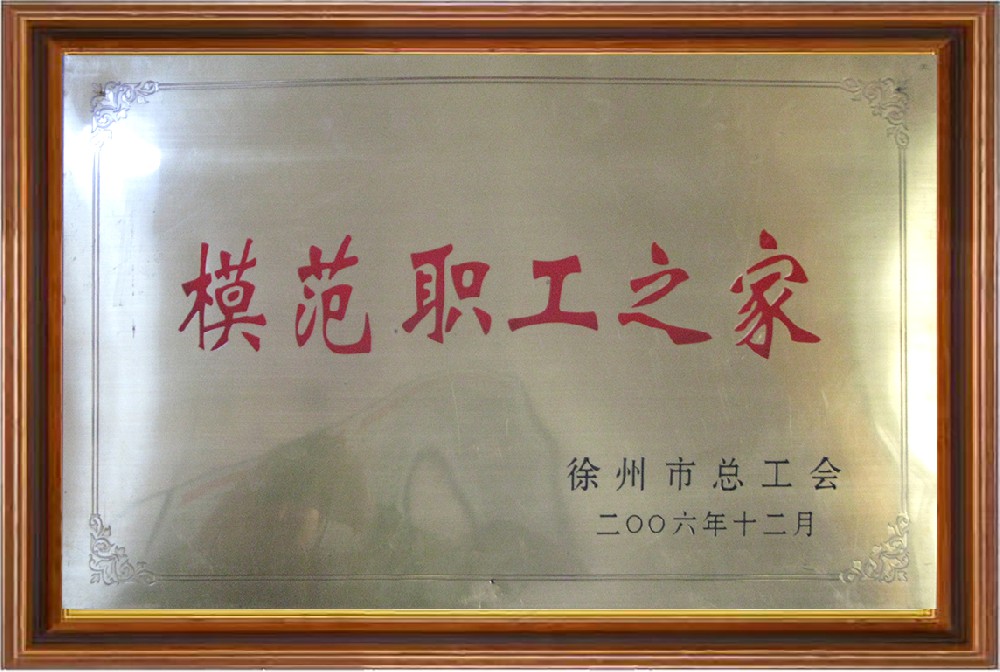 模范职工之家
徐州市总工会
二〇〇六年十二月